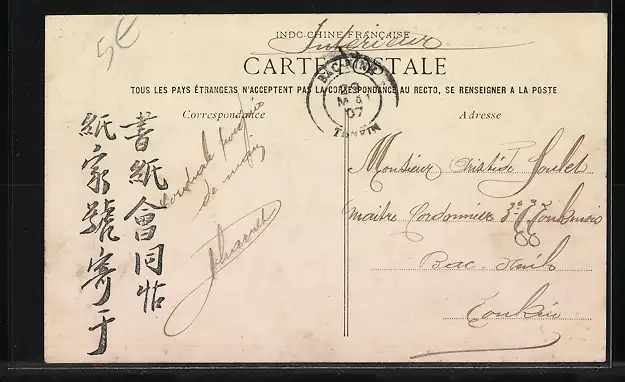 5€
INDO-CHINE FRANÇAISE
Intérieur
CARTE POSTALE
TOUS LES PAYS ÉTRANGERS N'ACCEPTENT PAS LA CORRESPONDANCE AU RECTO, SE RENSEIGNER A LA POSTE
BAC-NINH
MAI
07
TONKIN
Correspondance
Adresse
書紙會同帖
紙家號寄于
Cordiale
de main
Monsieur Aristide Soulet
Maître Cordonnier 3e Tonkinois
Bac-Ninh
Tonkin